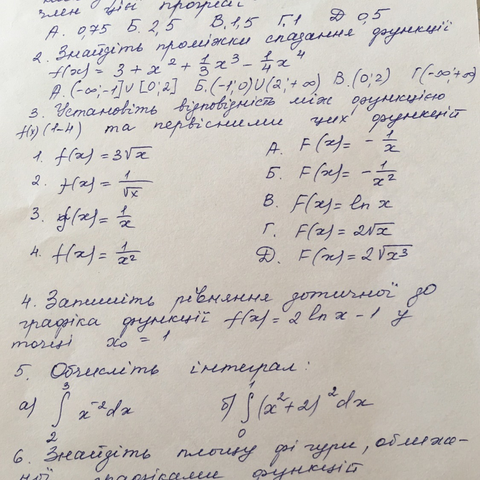 член цієї прогресії
А. 0,75 Б. 2,5 В. 1,5 Г. 1 Д 0,5
2. Знайдіть проміжки спадання функції
f(x) = 3 + x² + 1/3 x³ - 1/4 x⁴
А. (-∞; -1] U [0; 2] Б. (-1; 0) U (2; +∞) В. (0; 2) Г (-∞; +∞)
3. Установіть відповідність між функцією
f(x) (1-4) та первісними цих функцій
1. f(x) = 3√x А. F(x) = - 1/x
2. f(x) = 1/√x Б. F(x) = - 1/x²
3. f(x) = 1/x В. F(x) = ln x
4. f(x) = 1/x² Г. F(x) = 2√x
Д. F(x) = 2√x³
4. Запишіть рівняння дотичної до
графіка функції f(x) = 2 ln x - 1 у
точці x₀ = 1
5. Обчисліть інтеграл:
а) ∫₂³ x⁻² dx б) ∫₀¹ (x² + 2)² dx
6. Знайдіть площу фігури, обмеже-
ної графіками функцій